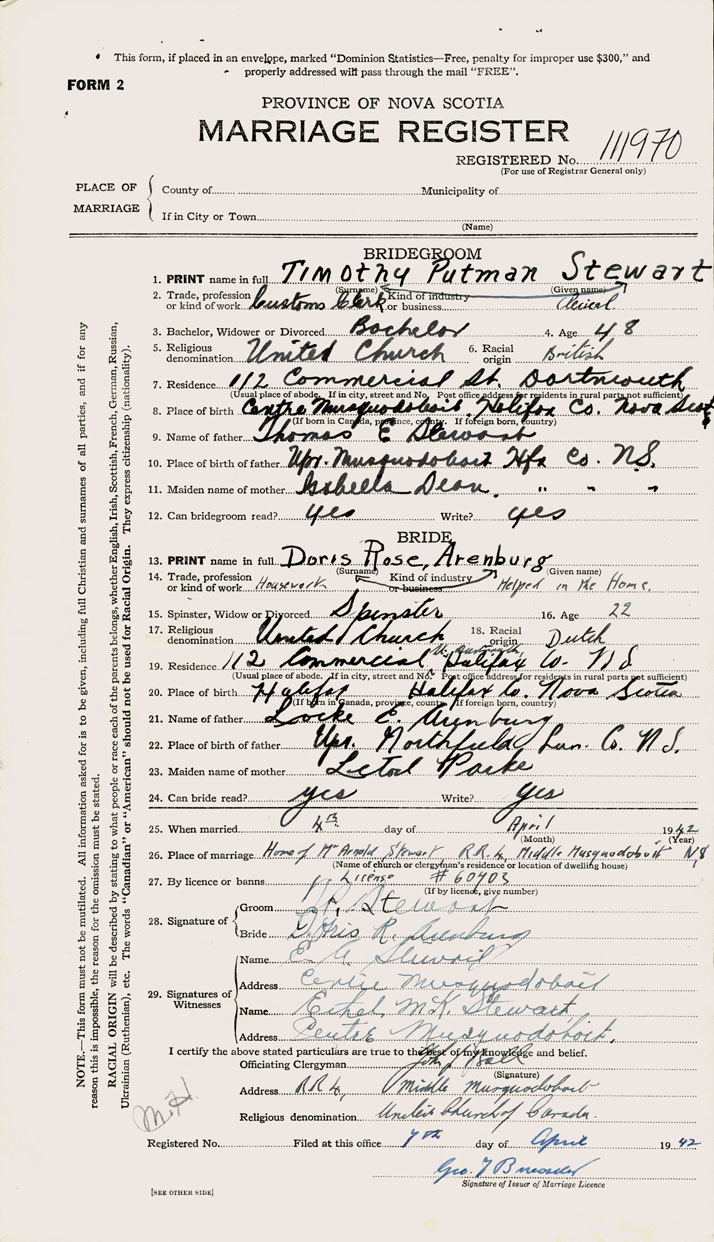 This form, if placed in an envelope, marked "Dominion Statistics—Free, penalty for improper use $300," and
properly addressed will pass through the mail "FREE".
FORM 2
PROVINCE OF NOVA SCOTIA
MARRIAGE REGISTER
REGISTERED No. 111970
(For use of Registrar General only)
PLACE OF MARRIAGE
County of Municipality of
If in City or Town
(Name)
BRIDEGROOM
1. PRINT name in full Timothy Putman Stewart
(Surname) (Given name)
2. Trade, profession or kind of work Customs Clerk Kind of industry or business Clerical
3. Bachelor, Widower or Divorced Bachelor 4. Age 48
5. Religious denomination United Church 6. Racial origin British
7. Residence 112 Commercial St. Dartmouth
(Usual place of abode. If in city, street and No. Post office address for residents in rural parts not sufficient)
8. Place of birth Centre Musquodoboit, Halifax Co. Nova Scotia
(If born in Canada, province, county. If foreign born, country)
9. Name of father Thomas E Stewart
10. Place of birth of father Upr. Musquodoboit Hfx Co. N.S.
11. Maiden name of mother Isabella Dean, " " "
12. Can bridegroom read? yes Write? yes
BRIDE
13. PRINT name in full Doris Rose, Arenburg
(Surname) (Given name)
14. Trade, profession or kind of work Housework Kind of industry or business Helped in the Home.
15. Spinster, Widow or Divorced Spinster 16. Age 22
17. Religious denomination United Church 18. Racial origin Dutch
19. Residence 112 Commercial Halifax Co. N S
(Usual place of abode. If in city, street and No. Post office address for residents in rural parts not sufficient)
20. Place of birth Halifax Halifax Co. Nova Scotia
(If born in Canada, province, county. If foreign born, country)
21. Name of father Locke E. Arenburg
22. Place of birth of father Upr. Northfield, Lun. Co. N.S.
23. Maiden name of mother
24. Can bride read? yes Write? yes
25. When married 4th day of April 1942
(Month) (Year)
26. Place of marriage Home of Mr Arnold Stewart, R.R.4, Middle Musquodoboit N.S
(Name of church or clergyman's residence or location of dwelling house)
27. By licence or banns License # 60403
(If by licence, give number)
28. Signature of
Groom Stewart
Bride Doris R. Arenburg
29. Signatures of Witnesses
Name Stewart
Address Centre Musquodoboit
Name Ethel M.K. Stewart
Address Centre Musquodoboit.
I certify the above stated particulars are true to the best of my knowledge and belief.
Officiating Clergyman John
(Signature)
Address R.R.4, Middle Musquodoboit
Religious denomination United Church of Canada.
Registered No. Filed at this office 7th day of April 1942
Geo.
Signature of Issuer of Marriage Licence
[SEE OTHER SIDE]
NOTE.—This form must not be mutilated. All information asked for is to be given, including full Christian and surnames of all parties, and if for any
reason this is impossible, the reason for the omission must be stated.
RACIAL ORIGIN will be described by stating to what people or race each of the parents belongs, whether English, Irish, Scottish, French, German, Russian,
Ukrainian (Ruthenian), etc. The words "Canadian" or "American" should not be used for Racial Origin. They express citizenship (nationality).